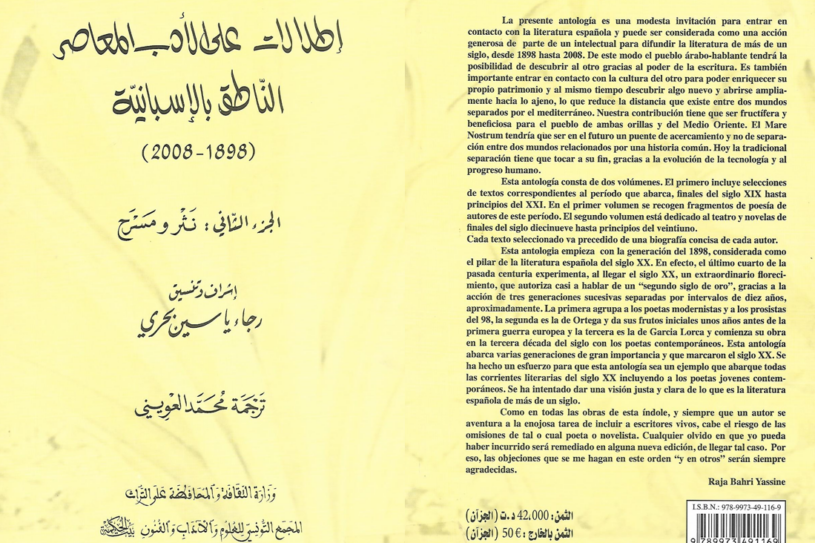 إطلالات على الأدب المعاصر
الناطق بالإسبانيّة
(2008-1898)
الجزء الثّاني : نَثْر و مَسْرَح
إشراف وتنسيق
رجاء ياسين بحري
تَرْجَمَة مُحَمَّد العويني
وزارة الثقافة والمحافظة على التراث
المجمع التونسي للعلوم والآداب والفنون بيت الحكمة
La presente antología es una modesta invitación para entrar en
contacto con la literatura española y puede ser considerada como una acción
generosa de parte de un intelectual para difundir la literatura de más de un
siglo, desde 1898 hasta 2008. De este modo el pueblo árabo-hablante tendrá la
posibilidad de descubrir al otro gracias al poder de la escritura. Es también
importante entrar en contacto con la cultura del otro para poder enriquecer su
propio patrimonio y al mismo tiempo descubrir algo nuevo y abrirse amplia-
mente hacia lo ajeno, lo que reduce la distancia que existe entre dos mundos
separados por el mediterráneo. Nuestra contribución tiene que ser fructífera y
beneficiosa para el pueblo de ambas orillas y del Medio Oriente. El Mare
Nostrum tendría que ser en el futuro un puente de acercamiento y no de separa-
ción entre dos mundos relacionados por una historia común. Hoy la tradicional
separación tiene que tocar a su fin, gracias a la evolución de la tecnología y al
progreso humano.
Esta antología consta de dos volúmenes. El primero incluye selecciones
de textos correspondientes al período que abarca, finales del siglo XIX hasta
principios del XXI. En el primer volumen se recogen fragmentos de poesía de
autores de este período. El segundo volumen está dedicado al teatro y novelas de
finales del siglo diecinueve hasta principios del veintiuno.
Cada texto seleccionado va precedido de una biografía concisa de cada autor.
Esta antologia empieza con la generación del 1898, considerada como
el pilar de la literatura española del siglo XX. En efecto, el último cuarto de la
pasada centuria experimenta, al llegar el siglo XX, un extraordinario floreci-
miento, que autoriza casi a hablar de un “segundo siglo de oro”, gracias a la
acción de tres generaciones sucesivas separadas por intervalos de diez años,
aproximadamente. La primera agrupa a los poetas modernistas y a los prosistas
del 98, la segunda es la de Ortega y da sus frutos iniciales unos años antes de la
primera guerra europea y la tercera es la de Garcia Lorca y comienza su obra
en la tercera década del siglo con los poetas contemporáneos. Esta antología
abarca varias generaciones de gran importancia y que marcaron el siglo XX. Se
ha hecho un esfuerzo para que esta antología sea un ejemplo que abarque todas
las corrientes literarias del siglo XX incluyendo a los poetas jovenes contem-
poráneos. Se ha intentado dar una visión justa y clara de lo que es la literatura
española de más de un siglo.
Como en todas las obras de esta índole, y siempre que un autor se
aventura a la enojosa tarea de incluir a escritores vivos, cabe el riesgo de las
omisiones de tal o cual poeta o novelista. Cualquier olvido en que yo pueda
haber incurrido será remediado en alguna nueva edición, de llegar tal caso. Por
eso, las objeciones que se me hagan en este orden “y en otros” serán siempre
agradecidas.
Raja Bahri Yassine
الثمن : 42,000 د.ت (الجزآن)
الثمن بالخارج : 50 € (الجزآن)
I.S.B.N.: 978-9973-49-116-9
9789973491169